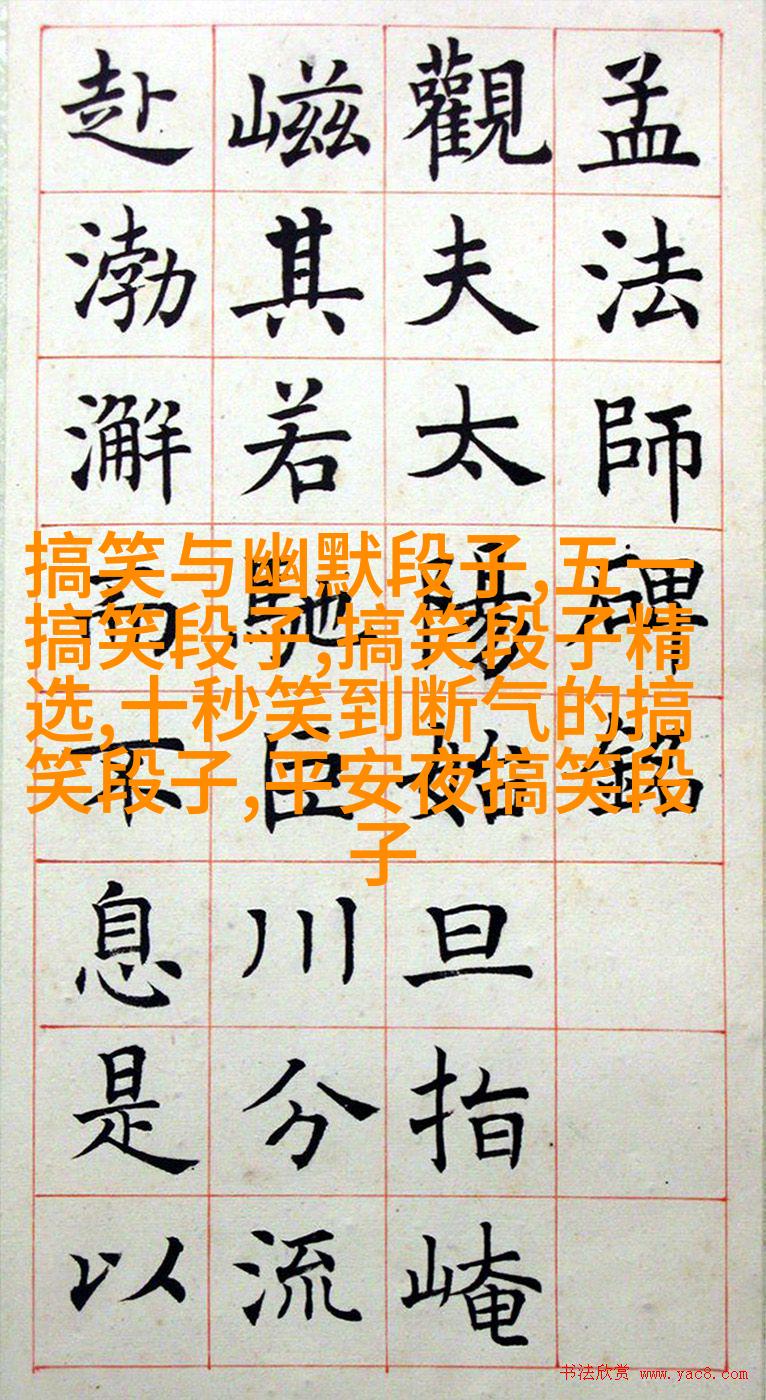 孟法師碑銘
觀夫太陽始旦指崦
嵫其若馳巨川分流
赴渤澥而不息是以
搞笑与幽默段子,五一
搞笑段子,搞笑段子精
选,十秒笑到断气的搞
笑段子,平安夜搞笑段
子
书法欣赏 www.yac8.com